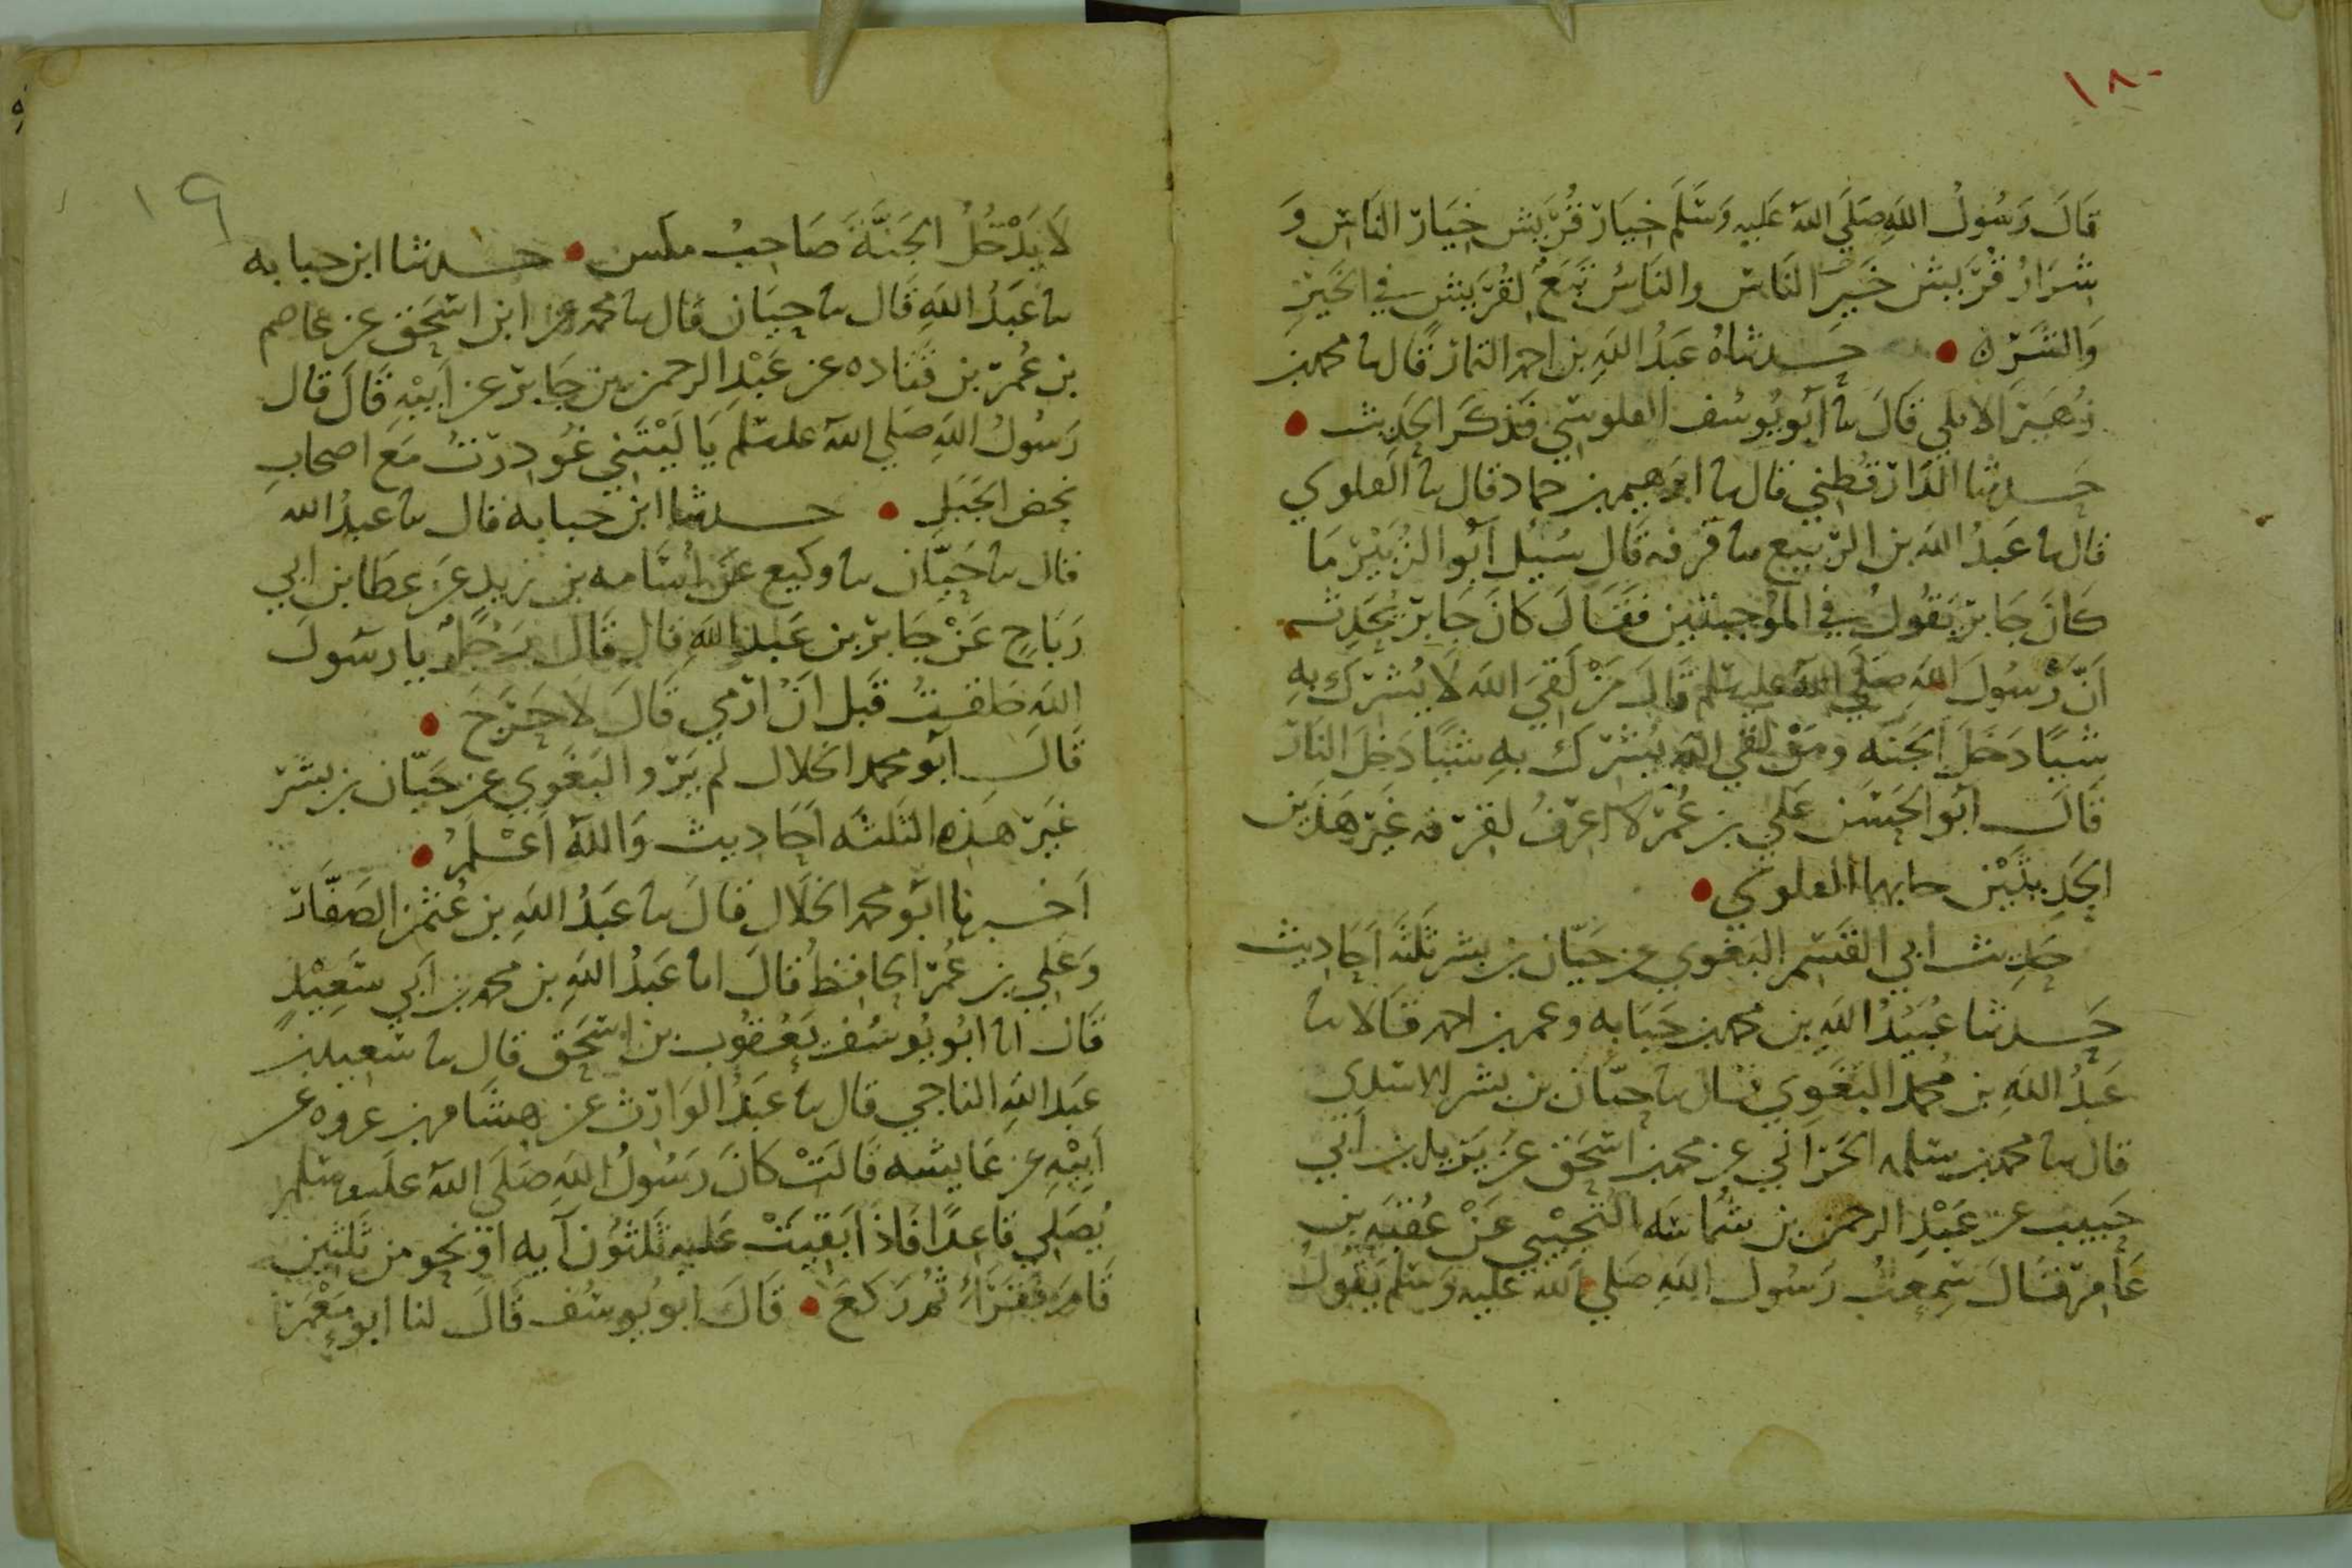 ١٨
قَالَ رَسُولُ اللهِ صَلَّى اللهُ عَليهِ وَسَلَّمَ خِيَارُ قُرَيشٍ خِيَارُ النَاسِ وَ
شِرَارُ قُرَيشٍ خَيرُ النَّاسِ والنَاسُ تَبَعٌ لِقُرَيشٍ في الخَيرِ
وَالشَرِّ ه حدثناهُ عَبدُ اللهِ بن احمد التمار قال نا محمد بن
زُهَير الابلي قَالَ نا أبو يُوسُف القلوسي فَذكَرَ الحَدِيث
حَدثنا الدَارَقُطني قال نا ابرهيم بن حماد قال نا القلوسي
قال نا عَبدُ الله بن الرَّبيع نا قزعه قَال سُئِلَ أبُو الزُبَيْر مَا
كَانَ جَابِر يَقُولُ في المُوجِبتَين فَقَالَ كَانَ جَابِر يُحَدِث
اَنَّ رَسُولَ اللهِ صَلَّى اللهُ عليه وسلم قَالَ مَنْ لَقِيَ اللهَ لَا يُشرك بِهِ
شَيئًا دَخَلَ الجَنَه ومَنْ لَقي اللهَ يُشرك بهِ شَيئًا دَخَلَ النَار
قَالَ ابُو الحَسَن عَلي بن عُمَر لا اعرفُ لقزعه غَير هَذَين
الحَدِيثَيْن حدثا بهما القلوسي
حَدِيث أبي القَسم البغوي عن حَيّان بن بشر ثَلثَة اَحَاديث
حَدثنا عُبَيدُ اللهِ بن محمد بن حَبَابه وعمر بن احمد قَالا نا
عَبدُ اللهِ بن مُحمد البَغَوِي قال نا حَيّان بن بشر الاسدي
قال نا محمد بن سلمه الحراني عن محمد بن اسحق عن يَزيد بن أبي
حَبيب عن عَبْدِ الرحمن بن شُمَاسَه التُجِيْبي عَنْ عُقبَه بن
عَامِر قَال سَمِعتُ رَسُول اللهِ صَلي الله عَليه وَسلم يَقُولُ
١٩
لَا يَدْخُلُ الجَنَّةَ صَاحِبُ مكس حدثنا ابن حبابه
نا عَبدُ اللهِ قَال نا حَيَان قال نا محمد عن ابن اسحق عن عاصم
بن عُمَر بن قَتَاده عن عَبْدِ الرحمن بن جَابِر عن اَبيْهِ قَالَ قَال
رَسُولُ اللهِ صَلي الله عليه وسلم يَا لَيْتَني غُودِرتُ مَعَ اصحابِ
نحض الجَبَلِ حدثنا ابن حبابه قال نا عبدُ الله
قال نا حَيّان نا وكيع عَن اُسَامه بن زيد عَن عطَا بن ابي
رَبَاحٍ عَنْ جَابِر بن عَبد اللهِ قال قَالَ رَجُلٌ يا رسُولَ
اللهِ حَلقتُ قَبل اَنْ ارمي قَالَ لَا حَرَجَ
قَالَ أبُو محمد الخلال لم يَرو البَغَوِي عن حَيّان بن بشر
غَير هَذه الثَلثَه اَحَاديث وَاللهُ اَعْلمُ
اَخبرنا ابُو محمد الخَلَال قَالَ نا عَبدُ اللهِ بن عُثمن الصَفَّار
وَعَلي بن عُمَر الحَافظُ قَالَ انا عَبدُ اللهِ بن محمد بن اَبي سَعِيْدٍ
قَال انا ابُو يُوسُف يَعقوب بن اسحَق قال نا سَعيد بن
عَبد اللهِ الناجي قال نا عَبدُ الوَارث عن هِشَام بن عروه عن
اَبِيْهِ عن عَايشه قَالتْ كَانَ رَسُولُ اللهِ صَلَى اللهُ عَليه وسَلم
يُصَلِي قَاعِدًا فَاذَا بَقِيَتْ عَليهِ ثَلثُون آيه اوْ نحو من ثلثين
قَامَ فقَرَأ ثُم رَكَعَ قَالَ ابو يُوسُف قَالَ لنا ابو مَعْمَر